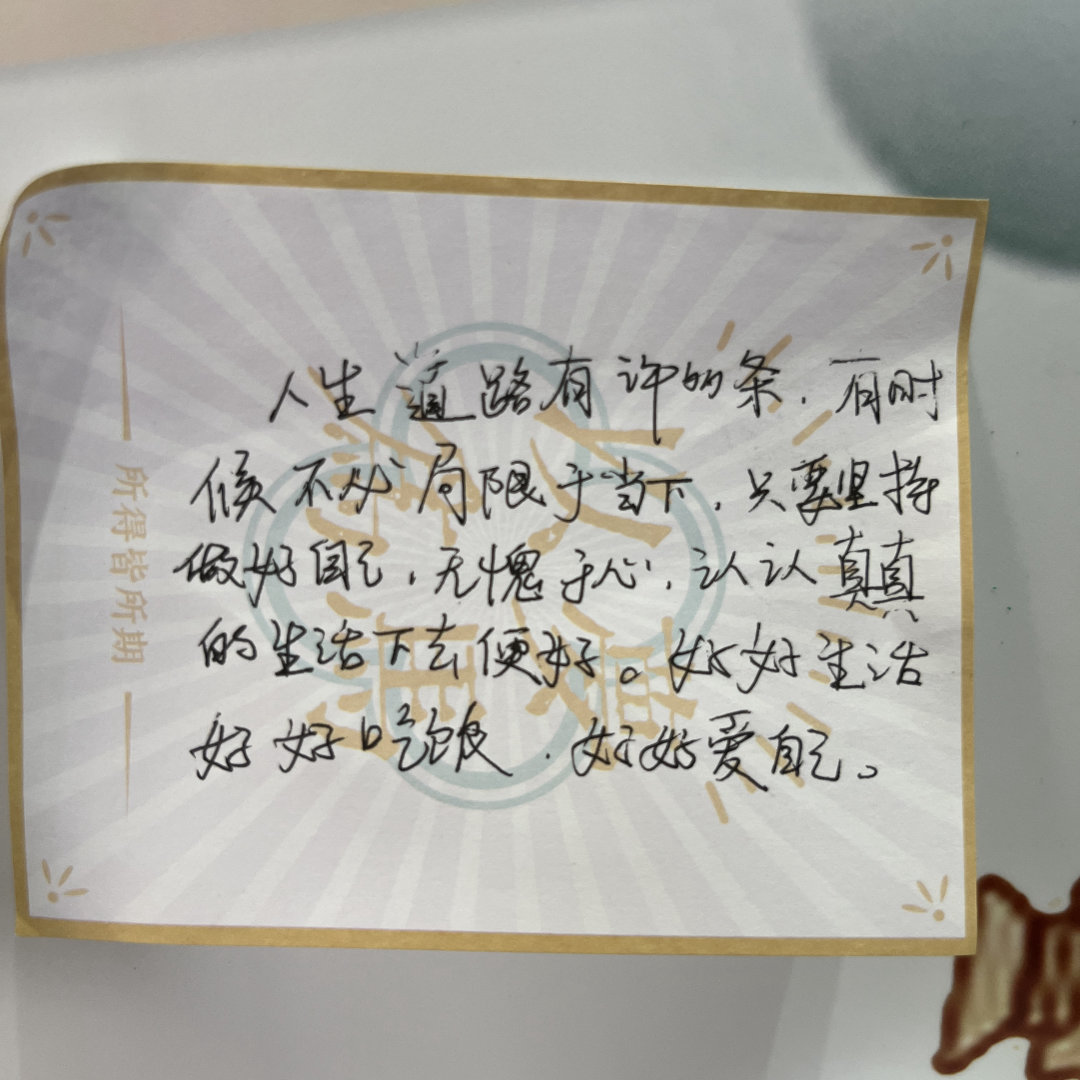 人生道路有许多条，有时
候不必局限于当下，只要坚持
做好自己，无愧于心，认认真真
的生活下去便好。好好生活
好好吃饭，好好爱自己。
所得皆所期